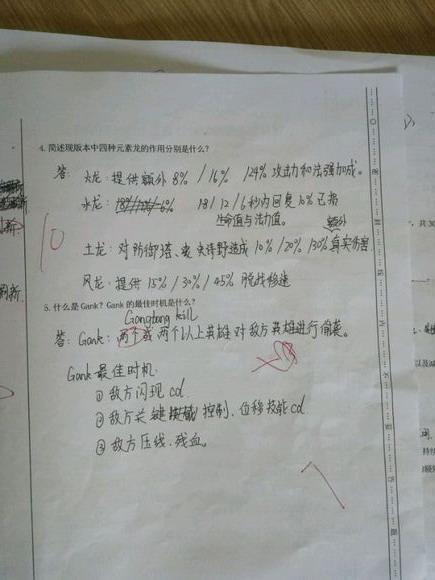 4. 简述现版本中四种元素龙的作用分别是什么?
答: 火龙: 提供额外 8% / 16% /24% 攻击力和法强加成。
水龙: 18 / 12 / 6秒内回复 10% 已损
生命值与法力值。
额外
10
土龙: 对防御塔、史诗野怪造成 10% / 20% / 30% 真实伤害
风龙: 提供 15% / 30% / 45% 脱战移速
5. 什么是Gank? Gank的最佳时机是什么?
Gangbang kill
答: Gank: 两个或两个以上英雄对敌方英雄进行偷袭。
Gank最佳时机
① 敌方闪现cd
② 敌方关键控制、位移技能cd
③ 敌方压线、残血。
7